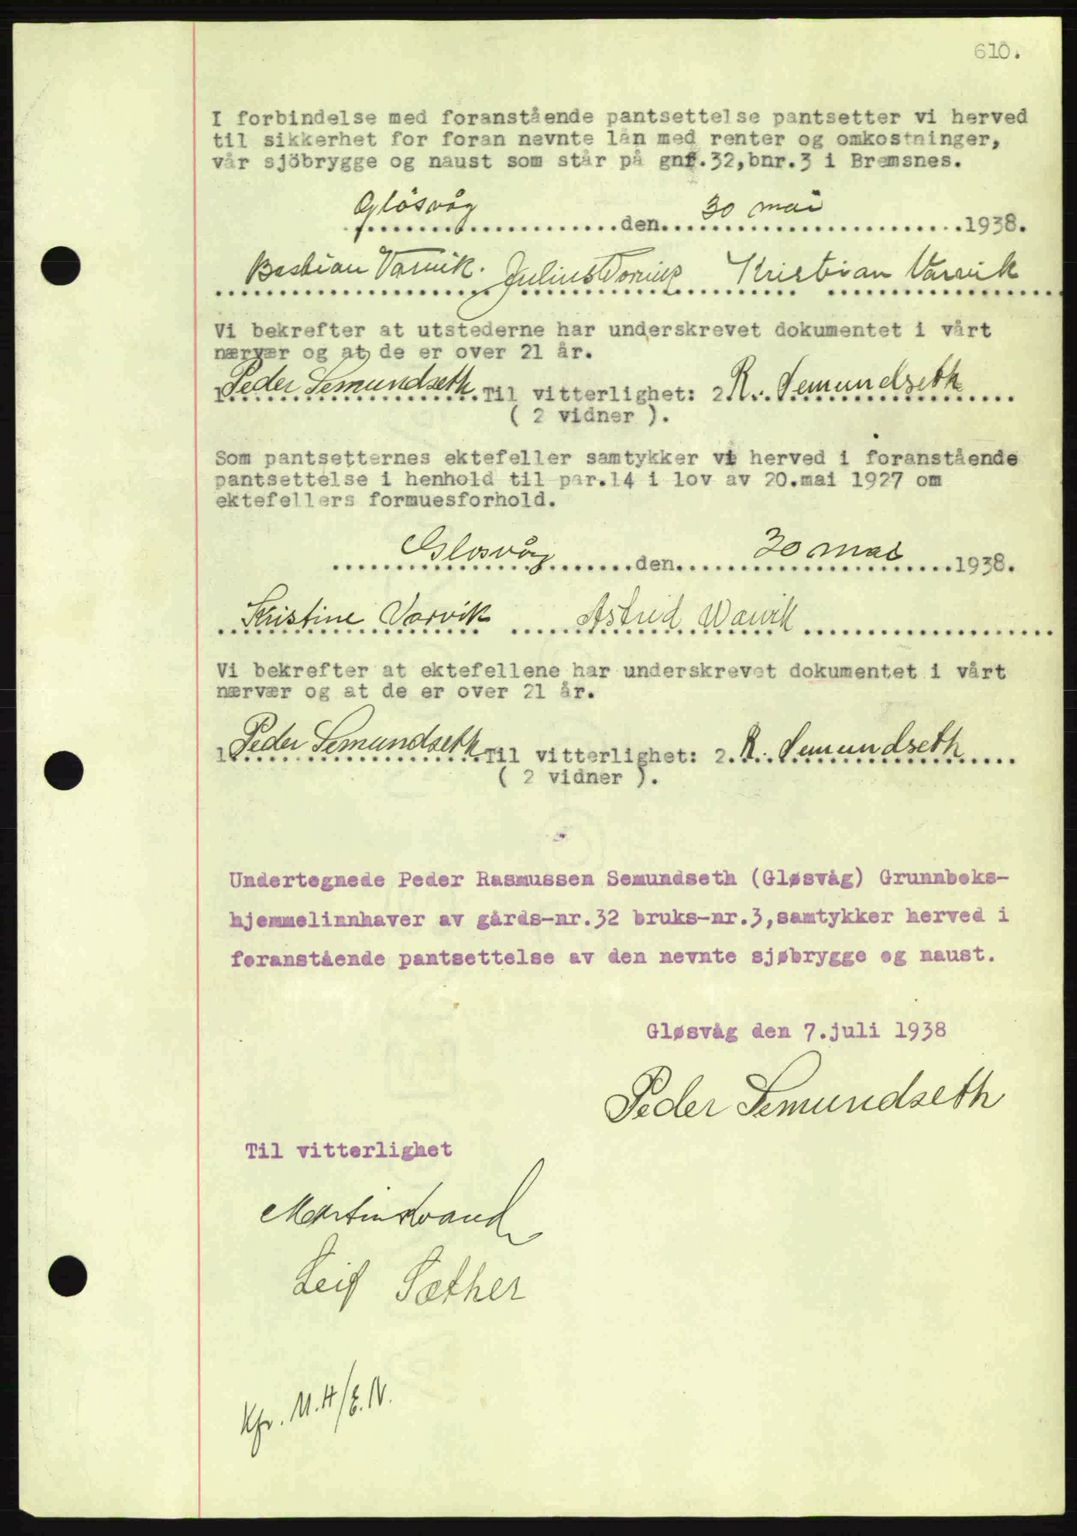 610.
I forbindelse med foranstående pantsettelse pantsetter vi herved
til sikkerhet for foran nevnte lån med renter og omkostninger,
vår sjöbrygge og naust som står på gnr.32,bnr.3 i Bremsnes.
Glösvåg den 30 mai 1938.
Bastian Varvik. Julius Varvik Kristian Varvik
Vi bekrefter at utstederne har underskrevet dokumentet i vårt
nærvær og at de er over 21 år.
1 Peder Semundseth Til vitterlighet: 2 R. Semundseth
( 2 vidner ).
Som pantsetternes ektefeller samtykker vi herved i foranstående
pantsettelse i henhold til par.14 i lov av 20.mai 1927 om
ektefellers formuesforhold.
Glosvåg den 30 mai 1938.
Kristine Varvik Astrid Warvik
Vi bekrefter at ektefellene har underskrevet dokumentet i vårt
nærvær og at de er over 21 år.
1 Peder Semundseth Til vitterlighet: 2. R. Semundseth
( 2 vidner ).
Undertegnede Peder Rasmussen Semundseth (Gløsvåg) Grunnboks-
hjemmelinnhaver av gårds-nr.32 bruks-nr.3,samtykker herved i
foranstående pantsettelse av den nevnte sjøbrygge og naust.
Gløsvåg den 7.juli 1938
Peder Semundseth
Til vitterlighet
Martin
Leif Sæther
Kfr. M.H/E.N.